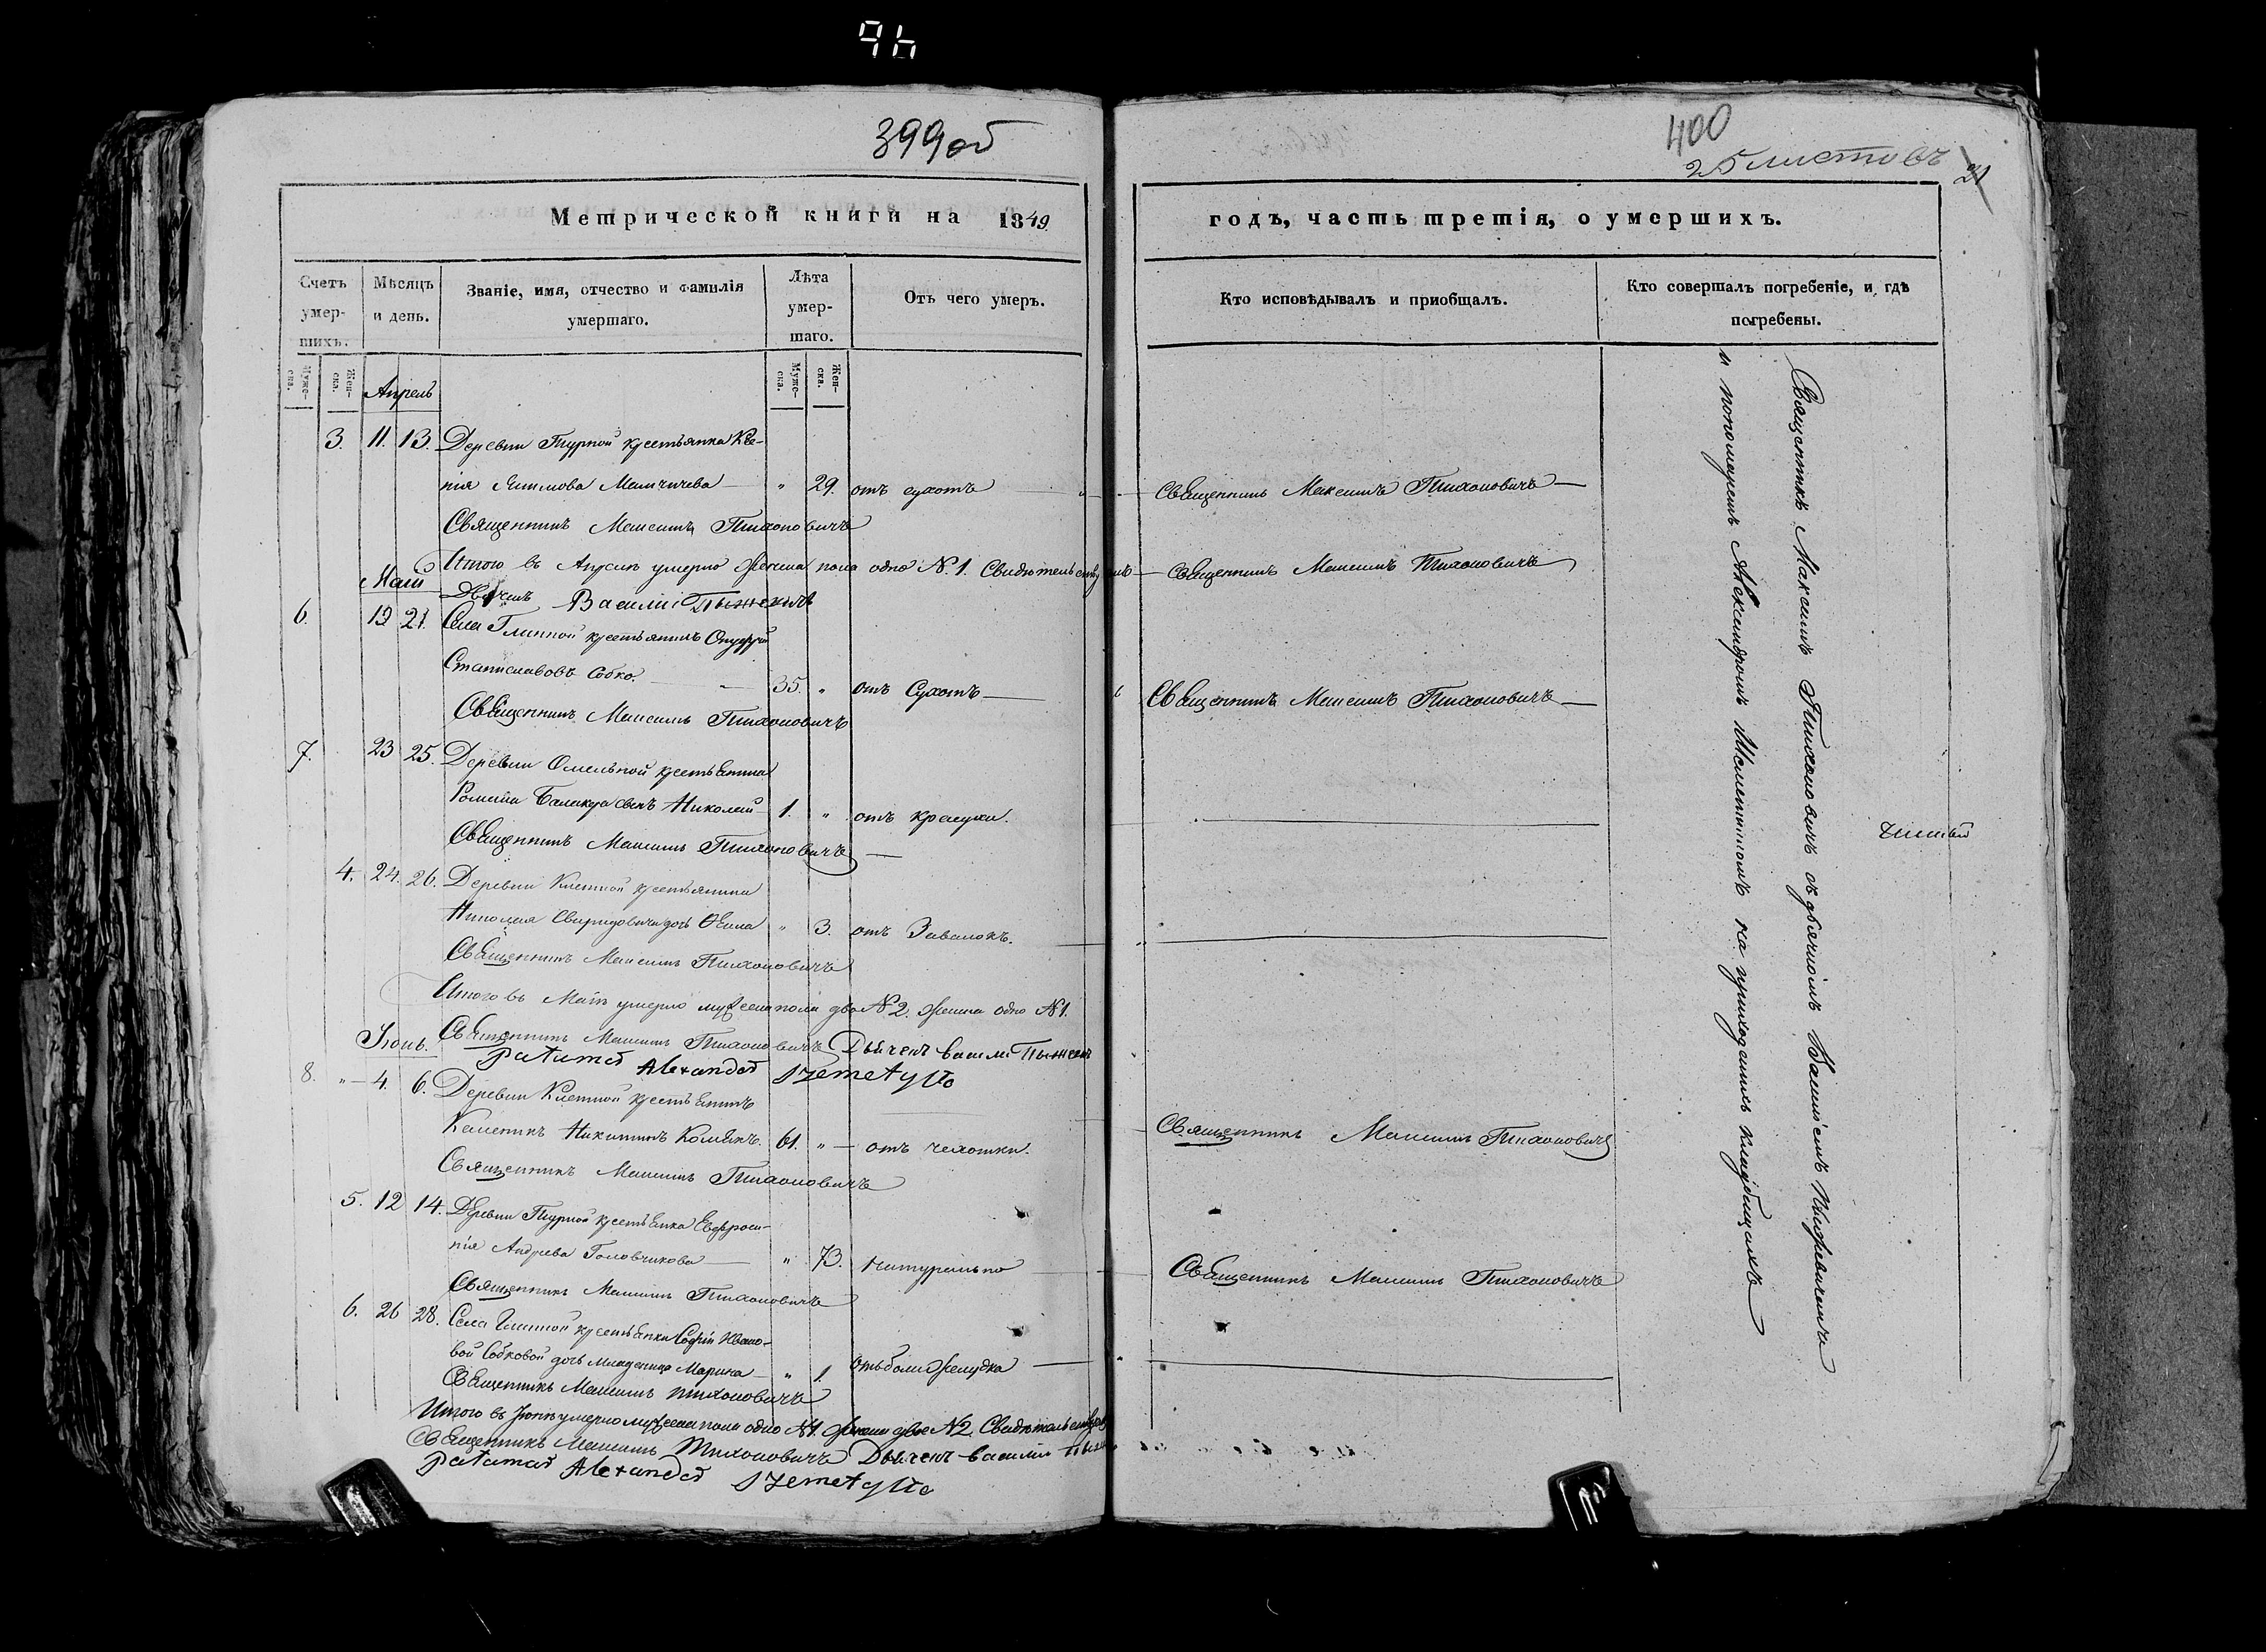 399об
Метрической книги на 1849
Счетъ умершихъ.
Мѣсяцъ и день.
Званіе, имя, отчество и фамилія умершаго.
Лѣта умершаго.
Отъ чего умеръ.
Муже-ска.
Жен-ска.
Муже-ска.
Жен-ска.
Апрель
3. 11. 13. Деревни Турной крестьянка Ксе-
нія Якимова " 29. отъ сухотъ
Священникъ Максимъ Тихоновичъ
Итого въ Апрелѣ умерло женска пола одно № 1. Свидетельствуемъ
Священникъ Максимъ Тихоновичъ
Май
Дьячекъ Василій
6. 19 21. Села Глинной крестьянинъ Онуфрій
Станиславовъ Собко. 35. " отъ Сухотъ
Священникъ Максимъ Тихоновичъ
7. 23 25. Деревни Омельной крестьянина
Романа сынъ Николай 1. " отъ краснухи.
Священникъ Максимъ Тихоновичъ
4. 24. 26. Деревни Клетной крестьянина
Николая Свиридовича дочь " 3. отъ Завалокъ.
Священникъ Максимъ Тихоновичъ
Итого въ Маѣ умерло мужеска пола два № 2. женска одно № 1.
Священникъ Максимъ Тихоновичъ Дьячекъ Василій
Іюнь.
Alexander
8. " 4. 6. Деревни Клетной крестьянинъ
Никитинъ 61. " отъ чехотки.
Священникъ Максимъ Тихоновичъ
5. 12 14. Деревни Турной крестьянка Евфроси-
нія Андреева Головчикова " 73. натурально
Священникъ Максимъ Тихоновичъ
6. 26 28. Села Глинной крестьянки Софіи Ивано-
вой Собковой дочь младеница Марина " 1. отъ боли желудка
Священникъ Максимъ Тихоновичъ
Итого въ Іюнѣ умерло мужеска пола одно № 1. женска двое № 2. Свидетельствуемъ
Священникъ Максимъ Тихоновичъ Дьячекъ Василій
Alexander
400
25 листовъ
21
годъ, часть третія, о умершихъ.
Кто исповѣдывалъ и пріобщалъ.
Кто совершалъ погребеніе, и гдѣ погребены.
Священникъ Максимъ Тихоновичъ
Священникъ Максимъ Тихоновичъ
Священникъ Максимъ Тихоновичъ
Священникъ Максимъ Тихоновичъ
Священникъ Максимъ Тихоновичъ съ дьячкомъ Василіемъ
и пономаремъ Александромъ на приходскихъ кладбищахъ